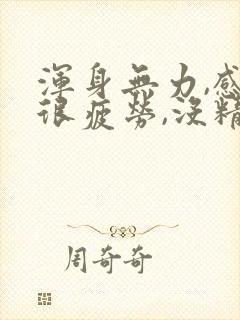 渾身無力,感
很疲勞,沒精
周奇奇